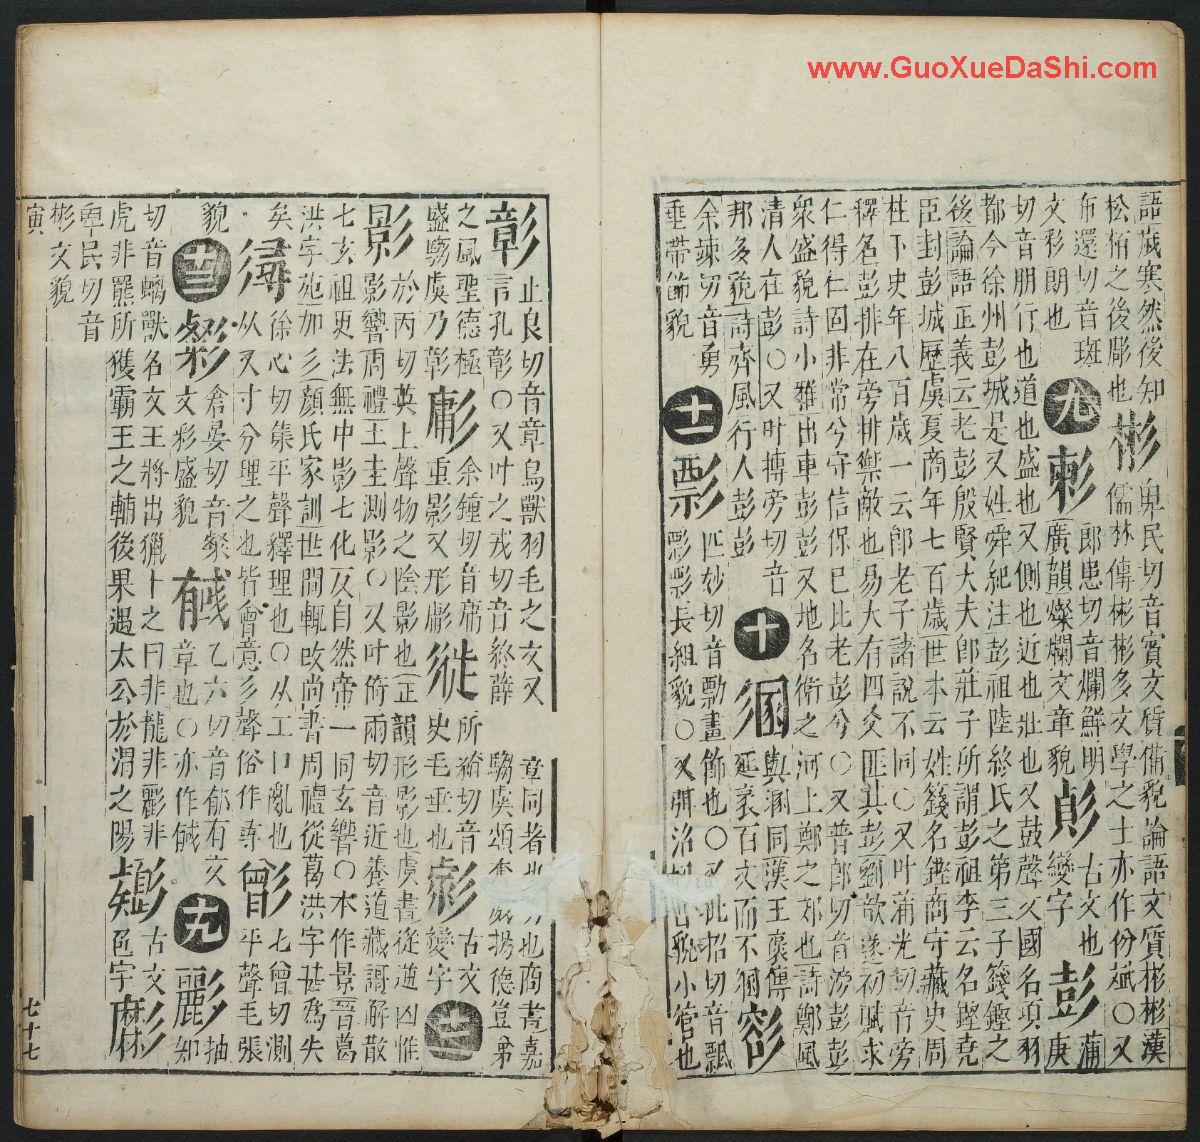 www.GuoXueDaShi.com
語歲寒然後知
松栢之後彫也
彬
卑民切音賓文質備貌論語文質彬彬漢
儒林傳彬彬多文學之士亦作份斌○又
布還切音斑
文彩朗也
九
郎患切音爛鮮明
廣韻燦爛文章貌
古文也
變字
彭
蒲
庚
切音朋行也道也盛也又側也近也壯也又鼓聲又國名項羽
都今徐州彭城是又姓舜紀注彭祖陸終氏之第三子籛鏗之
後論語正義云老彭殷賢大夫郎莊子所謂彭祖李云名鏗堯
臣封彭城歷虞夏商年七百歲世本云姓籛名鏗商守藏史周
柱下史年八百歲一云郎老子諸說不同○又叶蒲光切音旁
釋名彭排在旁排禦敵也易大有四爻匪其彭劉歆遂初賦求
仁得仁固非常兮守信保已比老彭兮○又普郎切音滂彭彭
衆盛貌詩小雅出車彭彭又地名衛之河上鄭之郊也詩鄭風
清人在彭○又叶摶旁切音
邦多貌詩齊風行人彭彭
十
與溷同漢王襃傳
延袤百丈而不溷
余竦切音勇
垂帶飾貌
十一
匹妙切音勡畫飾也○又紕招切音飄
彯彯長組貌○又
小管也
彰
止良切音章鳥獸羽毛之文又
章同者也
也商書嘉
言孔彰○又叶之戎切音終薛
騶虞頌
揚德豈弟
之風聖德極
盛騶虞乃彰
余鍾切音庸
重影又形彫
所銜切音
史毛垂也
古文
變字
十二
影
於丙切英上聲物之陰影也正韻形影也虞書從逆凶惟
影影響周禮土圭測影○又叶倚兩切音近養道藏謌解散
七玄祖更法無中影七化反自然帝一同玄響○本作景晉葛
洪字苑加彡顏氏家訓世間輒改尚書周禮從葛洪字甚為失
矣
徐心切集平聲釋理也○从工口亂也
从又寸分理之也皆會意彡聲俗作尋
七曾切測
平聲毛張
貌
倉晏切音粲
文彩盛貌
乙六切音郁有文
章也○亦作
十九
抽
知
切音螭獸名文王將出獵卜之曰非龍非彲非
虎非羆所獲霸王之輔後果遇太公於渭之陽
古文
邑字
卑民切音
彬文貌
寅
七十七